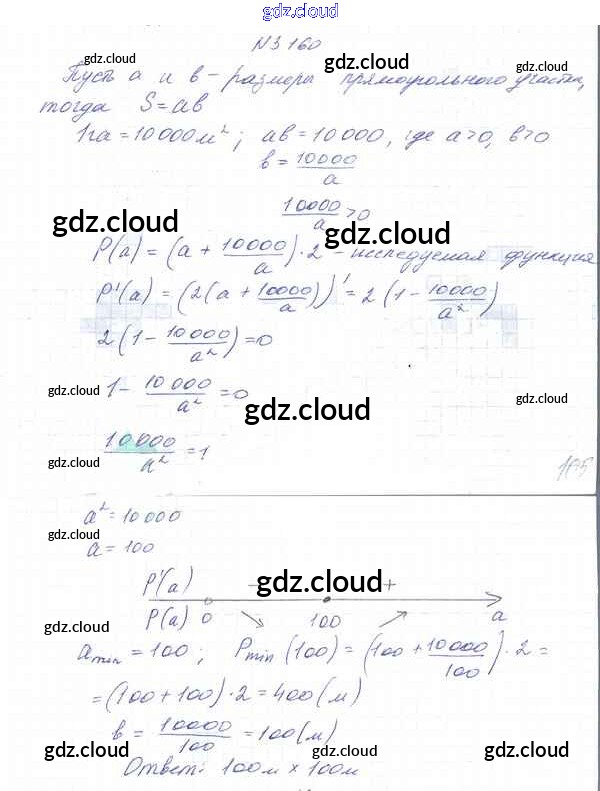 gdz.cloud
N3 160
gdz.cloud gdz.cloud gdz.cloud
Пусть a и в - размеры прямоугольного участка,
тогда S = aв
1га = 10 000 м²; aв = 10 000, где a>0, в>0
в = 10000/a
10000/a > 0
gdz.cloud gdz.cloud
P(a) = (a + 10000/a) · 2 - исследуемая функция
P'(a) = (2(a + 10000/a))' = 2(1 - 10000/a²)
2(1 - 10000/a²) = 0
1 - 10 000/a² = 0
gdz.cloud gdz.cloud gdz.cloud
10000/a² = 1
gdz.cloud gdz.cloud
a² = 10 000
gdz.cloud gdz.cloud
a = 100
P'(a) - gdz.cloud +
P(a) 0 100 a
gdz.cloud gdz.cloud
a min = 100; P min (100) = (100 + 10000/100) · 2 =
= (100 + 100) · 2 = 400 (м)
в = 10000/100 = 100 (м)
gdz.cloud gdz.cloud gdz.cloud
Ответ: 100м × 100м